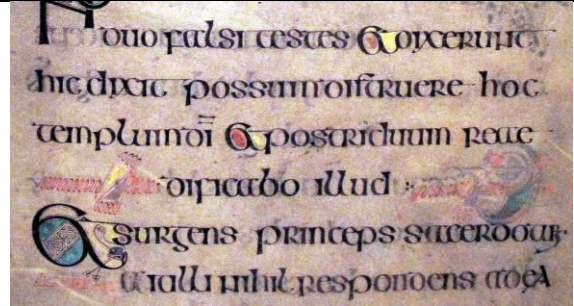 duo falsi testes & dixerunt
hic dixit possum distruere hoc
templum dī & postriduum reae
dificabo illud
& surgens princeps sacerdotum
ait illi nihil respondens ad ea